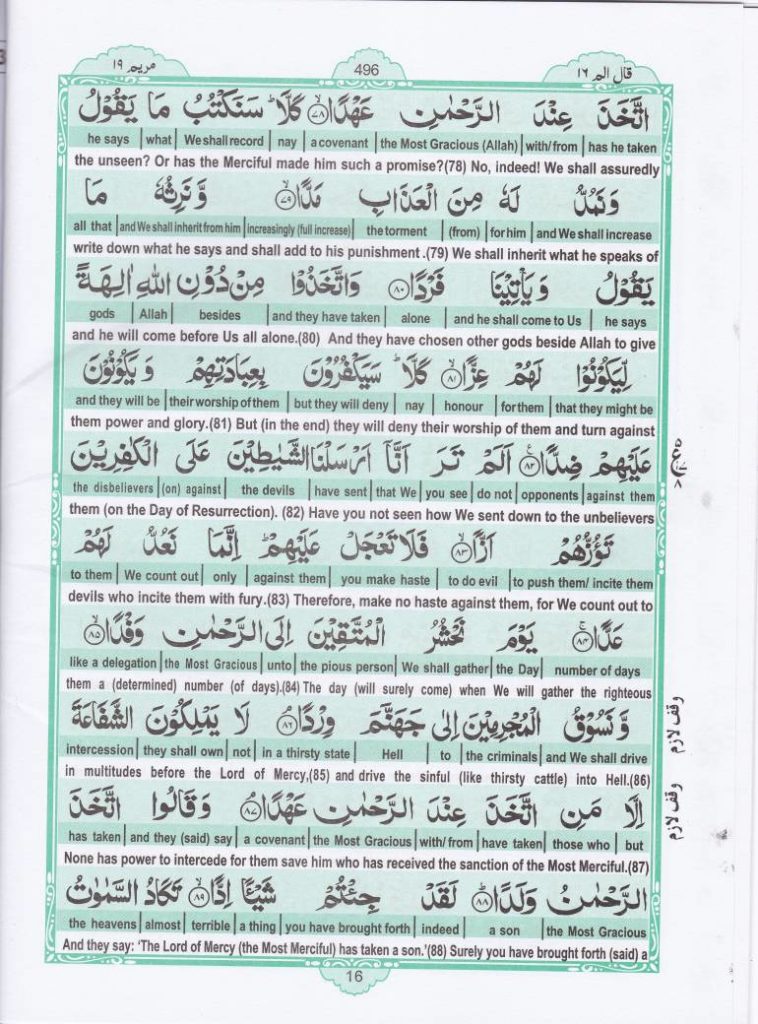 مريم ١٩ 496 قال الم ١٦
اتَّخَذَ عِنْدَ الرَّحْمٰنِ عَهْدًا ﴿٧٨﴾ كَلَّا ؕ سَنَكْتُبُ مَا يَقُوْلُ
he says | what | We shall record | nay | a covenant | the Most Gracious (Allah) | with/ from | has he taken
the unseen? Or has the Merciful made him such a promise?(78) No, indeed! We shall assuredly
وَ نَمُدُّ لَهٗ مِنَ الْعَذَابِ مَدًّا ﴿٧٩﴾ وَّ نَرِثُهٗ مَا
all that | and We shall inherit from him | increasingly (full increase) | the torment | (from) | for him | and We shall increase
write down what he says and shall add to his punishment .(79) We shall inherit what he speaks of
يَقُوْلُ وَ يَاْتِيْنَا فَرْدًا ﴿٨٠﴾ وَاتَّخَذُوْا مِنْ دُوْنِ اللّٰهِ اٰلِهَةً
gods | Allah | besides | and they have taken | alone | and he shall come to Us | he says
and he will come before Us all alone.(80) And they have chosen other gods beside Allah to give
لِّيَكُوْنُوْا لَهُمْ عِزًّا ﴿٨١﴾ كَلَّا ؕ سَيَكْفُرُوْنَ بِعِبَادَتِهِمْ وَ يَكُوْنُوْنَ
and they will be | their worship of them | but they will deny | nay | honour | for them | that they might be
them power and glory.(81) But (in the end) they will deny their worship of them and turn against
عَلَيْهِمْ ضِدًّا ﴿٨٢﴾ اَلَمْ تَرَ اَنَّاۤ اَرْسَلْنَا الشَّيٰطِيْنَ عَلَى الْكٰفِرِيْنَ
the disbelievers | (on) against | the devils | have sent | that We | you see | do not | opponents | against them
them (on the Day of Resurrection). (82) Have you not seen how We sent down to the unbelievers
تَؤُزُّهُمْ اَزًّا ﴿٨٣﴾ فَلَا تَعْجَلْ عَلَيْهِمْ ؕ اِنَّمَا نَعُدُّ لَهُمْ
to them | We count out | only | against them | you make haste | to do evil | to push them/ incite them
devils who incite them with fury.(83) Therefore, make no haste against them, for We count out to
عَدًّا ﴿٨٤﴾ يَوْمَ نَحْشُرُ الْمُتَّقِيْنَ اِلَى الرَّحْمٰنِ وَفْدًا ﴿٨٥﴾
like a delegation | the Most Gracious | unto | the pious person | We shall gather | the Day | number of days
them a (determined) number (of days).(84) The day (will surely come) when We will gather the righteous
وَّ نَسُوْقُ الْمُجْرِمِيْنَ اِلٰى جَهَنَّمَ وِرْدًا ﴿٨٦﴾ لَا يَمْلِكُوْنَ الشَّفَاعَةَ
وقف لازم
intercession | they shall own | not | in a thirsty state | Hell | to | the criminals | and We shall drive
in multitudes before the Lord of Mercy,(85) and drive the sinful (like thirsty cattle) into Hell.(86)
اِلَّا مَنِ اتَّخَذَ عِنْدَ الرَّحْمٰنِ عَهْدًا ﴿٨٧﴾ وَ قَالُوا اتَّخَذَ
وقف لازم
has taken | and they (said) say | a covenant | the Most Gracious | with/ from | have taken | those who | but
None has power to intercede for them save him who has received the sanction of the Most Merciful.(87)
الرَّحْمٰنُ وَلَدًا ﴿٨٨﴾ لَقَدْ جِئْتُمْ شَيْـًٔا اِدًّا ﴿٨٩﴾ تَكَادُ السَّمٰوٰتُ
the heavens | almost | terrible | a thing | you have brought forth | indeed | a son | the Most Gracious
And they say: 'The Lord of Mercy (the Most Merciful) has taken a son.'(88) Surely you have brought forth (said) a
16